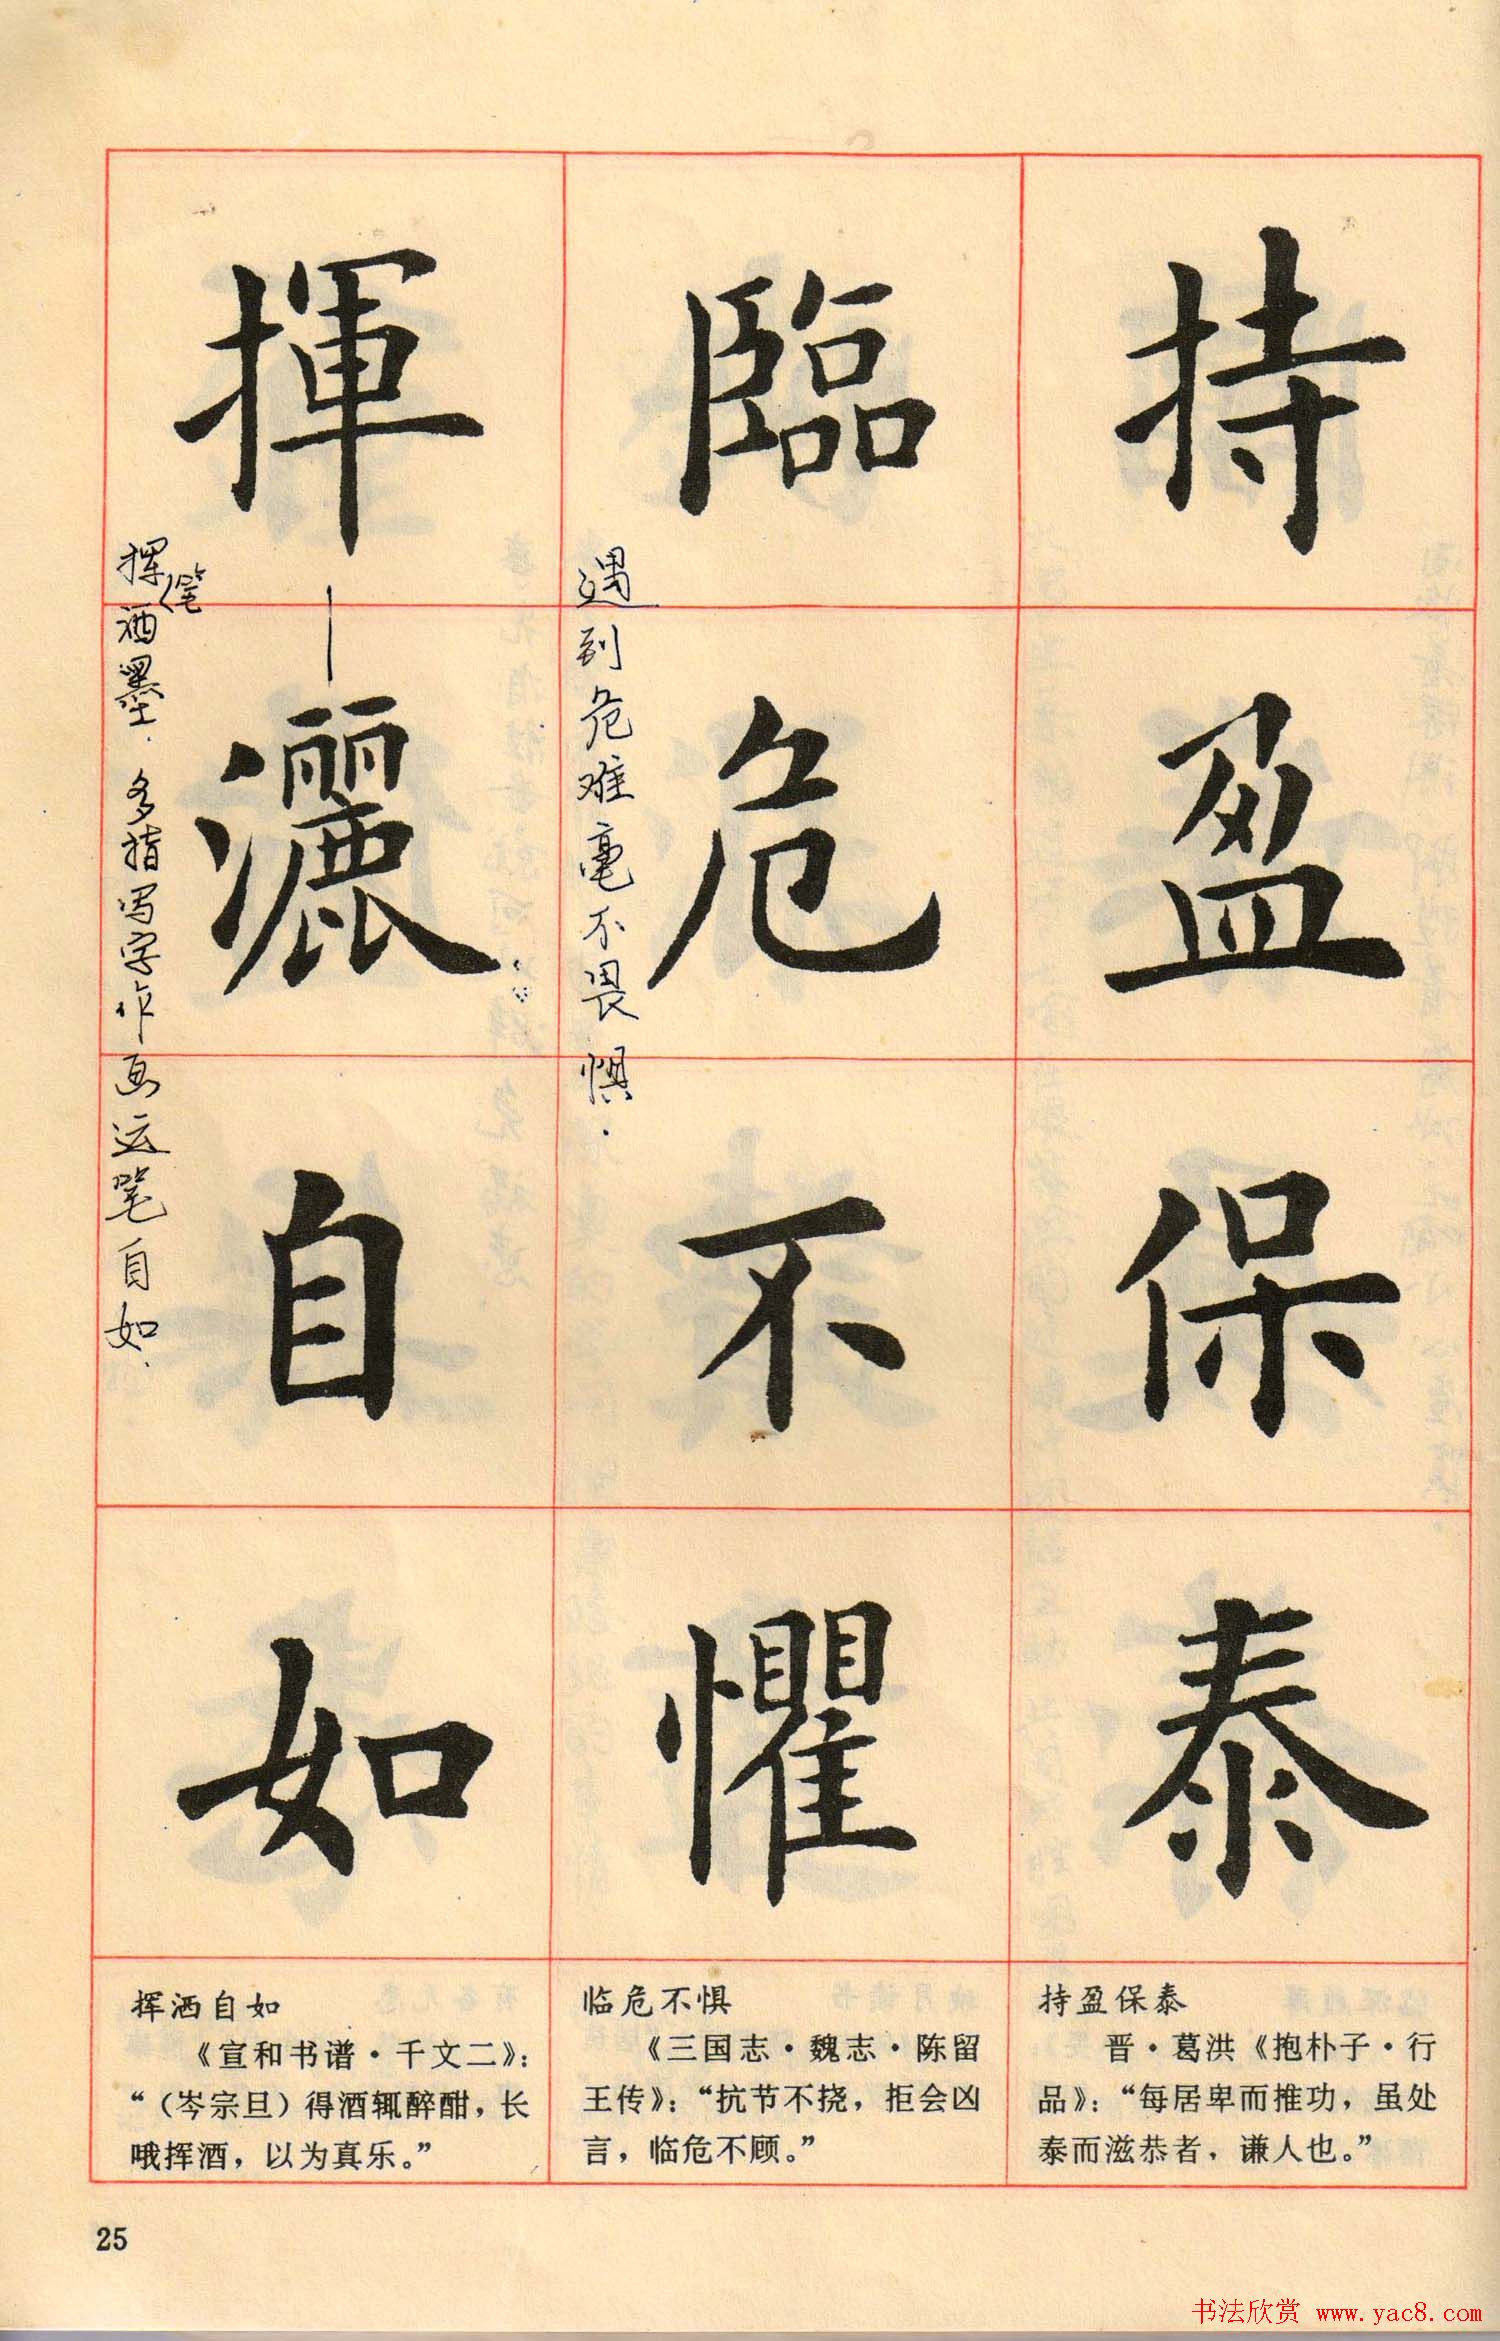 持盈保泰
臨危不懼
揮灑自如
遇到危难毫不畏惧.
挥笔洒墨.多指写字作画运笔自如.
持盈保泰
晋·葛洪《抱朴子·行
品》：“每居卑而推功，虽处
泰而滋恭者，谦人也。”
临危不惧
《三国志·魏志·陈留
王传》：“抗节不挠，拒会凶
言，临危不顾。”
挥洒自如
《宣和书谱·千文二》：
“（岑宗旦）得酒辄醉酣，长
哦挥洒，以为真乐。”
25
书法欣赏 www.yac8.com